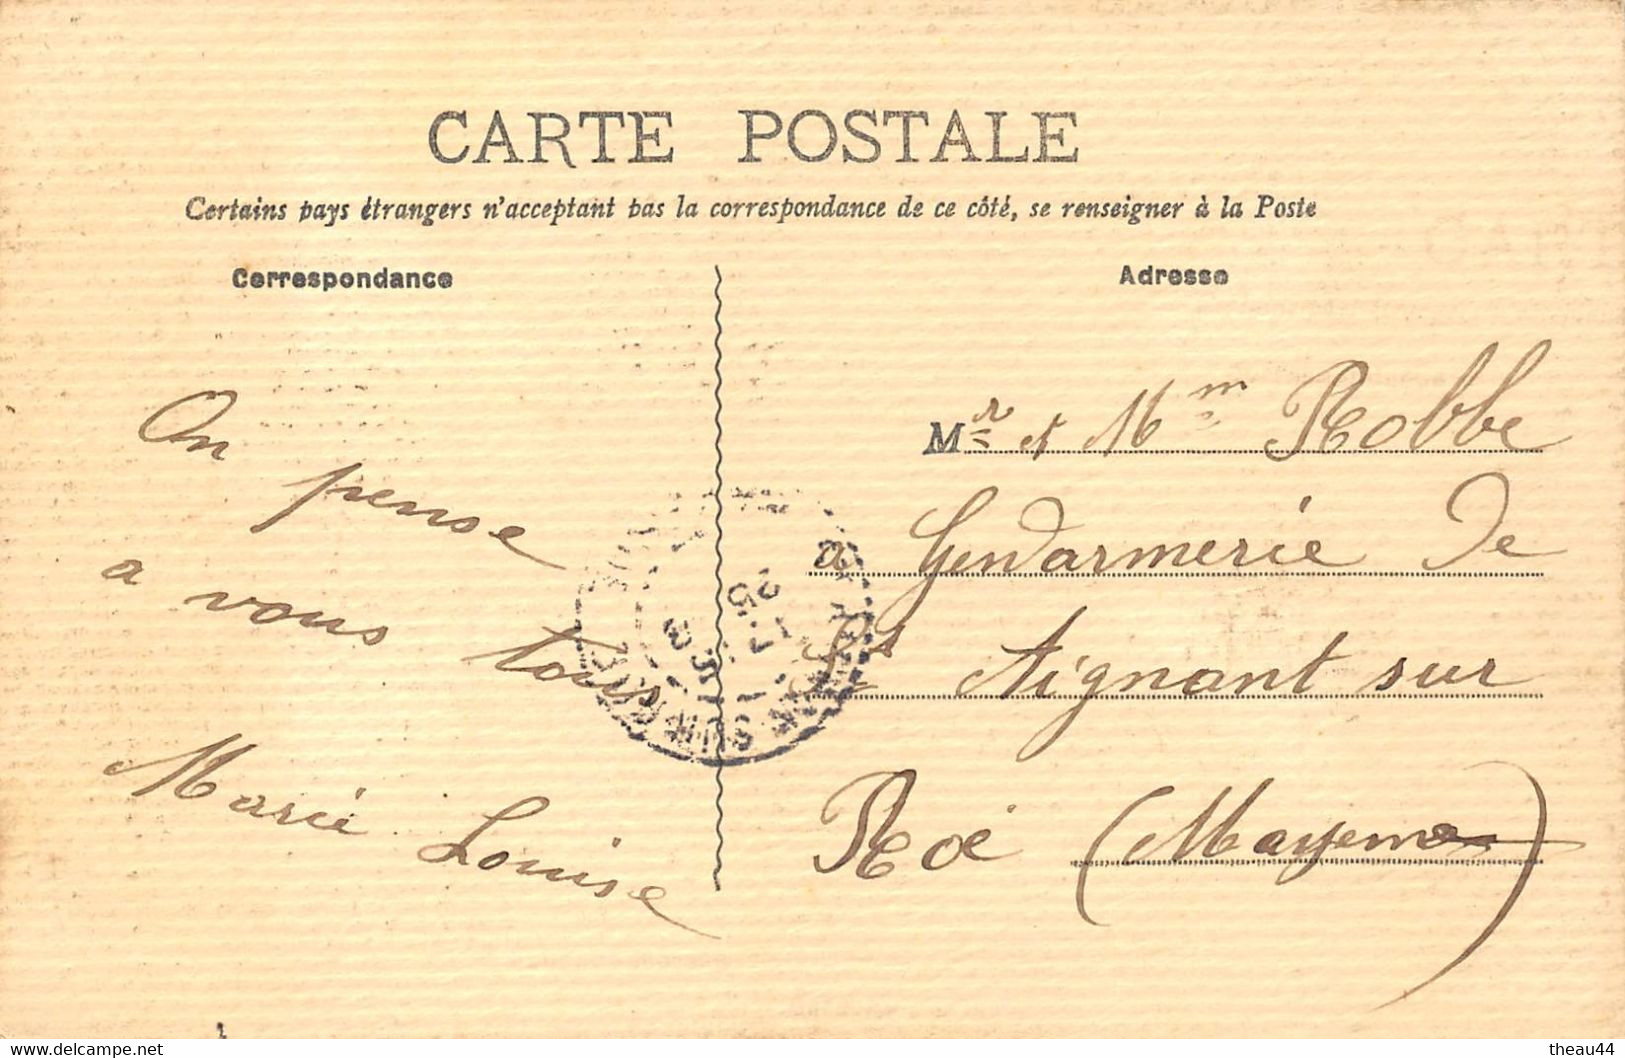 CARTE POSTALE
Certains pays étrangers n'acceptant pas la correspondance de ce côté, se renseigner à la Poste
Correspondance
Adresse
On
pense
a vous tous
Marie Louise
Mr et Mm Robbe
a Gendarmerie De
St Aignant sur
Roë (Mayenne)
delcampe.net
theau44